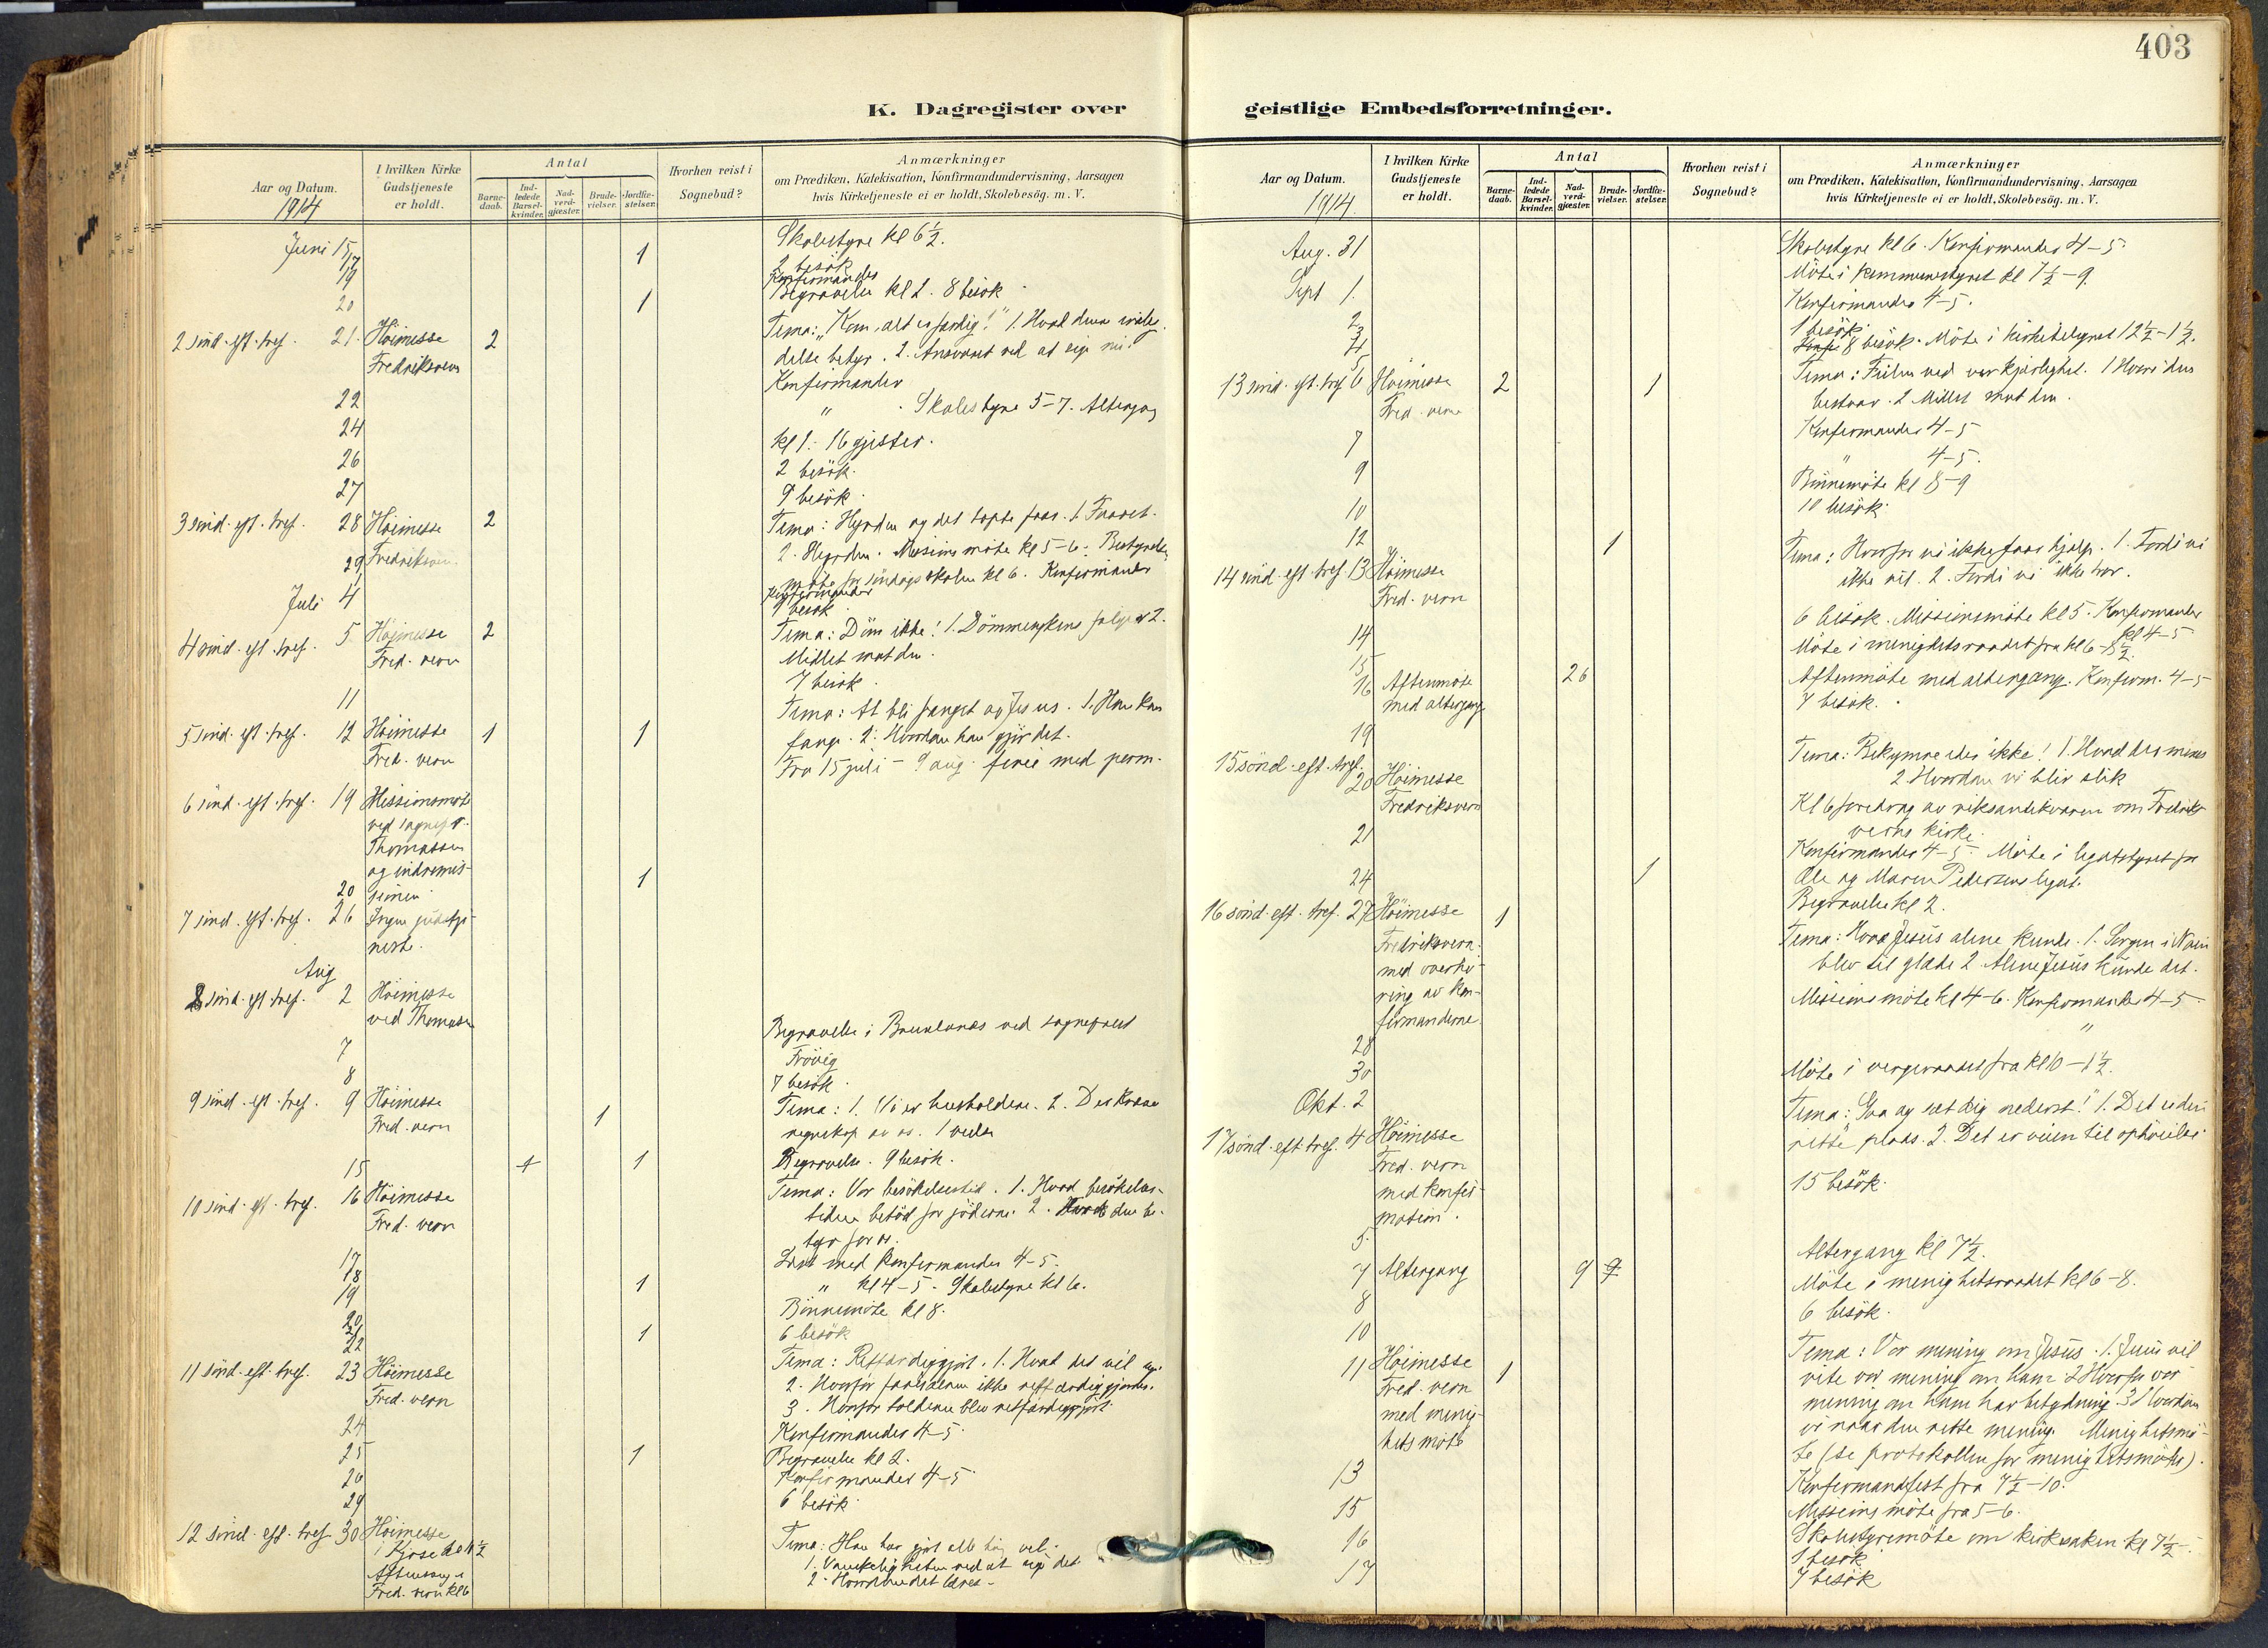 403
K. Dagregister over
geistlige Embedsforretninger.
Aar og Datum.
1914
I hvilken Kirke
Gudstjeneste
er holdt.
Antal
Barne-
daab.
Ind-
ledede
Barsel-
kvinder.
Nad-
verd-
gjæster.
Brude-
vielser.
Jordfæ-
stelser.
Hvorhen reist i
Sognebud?
Anmærkninger
om Prædiken, Katekisation, Konfirmandundervisning, Aarsagen
hvis Kirketjeneste ei er holdt, Skolebesög. m. V.
Juni 15 Skolestyre kl 6½.
17 1 2 besök
19 Konfirmander
20 1 Begravelse kl 2. 8 besök
2 sönd. eft. tref. 21. Höimesse 2 Tema: "Kom, alt er færdig!" 1. Hvad denne
Fredriksvern betyr. 2. Ansvaret ved at sige nei.
22 Konfirmander
24 " Skolestyre 5-7. Altergang
kl 1. 16 gjester.
26 2 besök.
27 9 besök.
3 sönd. eft. tref. 28 Höimesse 2 Tema: Hyrden og det tapte faar. 1. Faaret.
Fredriksvern. 2. Hyrden. Missionsmöte kl 5-6. Bestyrelses
29 möte for söndagsskolen kl 6. Konfirmander
Konfirmander
Juli 4 9 besök
4 sönd. eft. tref. 5. Höimesse 2 Tema: Döm ikke! 1. Dömmesykens følger 2.
Fred. vern Midlet mot den.
11 7 besök.
5 sönd. eft. tref. 12 Höimesse 1 1 Tema: At bli fanget av Jesus. 1. Han kan
Fred. vern fange. 2. Hvordan han gjör det.
Fra 15 juli - 9 aug. ferie med perm.
6 sönd. eft. tref. 19 Missionsmöte
ved sognepr.
Thomassen
og indremis-
sionen
20 1
7 sönd. eft. tref. 26 Ingen gudstje-
neste.
Aug
8 sönd. eft. tref. 2 Höimesse
ved Thomassen
7 Begravelse i Brunlanes ved sogneprest
Frövig
8 7 besök.
9 sönd. eft. tref. 9 Höimesse 1 Tema: 1. Vi er husholdere. 2. Der kræves
Fred. vern regnskap av os. 1 vielse
15 1 1 Begravelse. 9 besök.
10 sönd. eft. tref. 16 Höimesse Tema: Vor besökelsestid. 1. Hvad besökelses-
Fred. vern tiden betöd for jöderne. 2. Hvad den be-
tyr for os.
17 Læst med konfirmander 4-5.
18
19 1 " kl 4-5. Skolestyre kl 6.
20 Bönnemöte kl 8.
21 1 6 besök
22
11 sönd. eft. tref. 23 Höimesse Tema: Retfærdiggjort. 1. Hvad det vil si.
Fred. vern 2. Hvorfor farisæeren ikke retfærdiggjordes.
3. Hvorfor tolderen blev retfærdiggjort
24 Konfirmander 4-5.
25 1 Begravelse kl 2.
26 Konfirmander 4-5.
29 6 besök.
12 sönd. eft. tref. 30 Höimesse Tema: Han har gjort alle ting vel.
i Kjose kl 11½ 1. Vanskeligheten ved at sige det
Aftensang i 2. Hvordan det læres.
Fred. vern kl 6
Aar og Datum.
1914.
I hvilken Kirke
Gudstjeneste
er holdt.
Antal
Barne-
daab.
Ind-
ledede
Barsel-
kvinder.
Nad-
verd-
gjæster.
Brude-
vielser.
Jordfæ-
stelser.
Hvorhen reist i
Sognebud?
Anmærkninger
om Prædiken, Katekisation, Konfirmandundervisning, Aarsagen
hvis Kirketjeneste ei er holdt, Skolebesög. m. V.
Aug. 31 Skolestyre kl 6. Konfirmander 4-5.
Sept 1. Möte i kommunestyret kl 7½-9.
2 Konfirmander 4-5.
3 1 besök.
4 8 besök. Möte i kirketilsynet 12½-1½.
5
13 sönd. eft. tref. 6 Höimesse 2 1 Tema: Feilen ved vor kjærlighet. 1 Hvori den
Fred. vern bestaar. 2 Midlet mot den.
7 Konfirmander 4-5
9 " 4-5.
10 Bönnemöte kl 8-9
12 1 10 besök.
14 sönd. eft. tref. 13 Höimesse Tema: Hvorfor vi ikke faar hjælp. 1. Fordi vi
Fred. vern ikke vil. 2. Fordi vi ikke tror.
14 6 besök. Missionsmöte kl 5. Konfirmander
kl 4-5
15 Möte i menighetsraadet fra kl 6-8½.
16 Aftenmöte 26 Aftenmöte med altergang. Konfirm. 4-5
med altergang
19 7 besök.
15 sönd. eft. tref.
20 Höimesse Tema: Bekymre eder ikke! 1. Hvad der menes
Fredriksvern 2 Hvordan vi blir slik
Kl 6 foredrag av riksantikvaren om Fredriks-
verns kirke.
21 Konfirmander 4-5. Möte i legatstyret for
Ole og Maren Pedersens legat.
24 1 Begravelse kl 2.
16 sönd. eft. tref. 27 Höimesse 1 Tema: Hvad Jesus alene kunde. 1. Sorgen i Nain
Fredriksvern. blev til glæde 2 Alene Jesus kunde det.
med overhö-
ring av kon-
firmanderne
28 Missionsmöte kl 4-6. Konfirmander 4-5.
30 "
Okt. 2 Möte i vergeraadet fra kl 10-1½.
17 sönd. eft tref. 4 Höimesse Tema: "Gaa og sæt dig nederst!" 1. Det er den
Fred. vern rette plads. 2. Det er veien til ophöielse.
med konfir-
mation.
5. 15 besök.
7 Altergang 9 9 Altergang kl 7½.
8 Möte i menighetsraadet kl 6-8.
10 6 besök.
11 Höimesse 1 Tema: Vor mening om Jesus. 1. Jesus vil
Fred. vern vite vor mening om ham 2 Hvorfor vor
med menig- mening om ham har betydning. 3 Hvordan
hets möte vi naar den rette mening. Menighetsmö-
te (se protokollen for menighetsmöter).
13 Konfirmandfest fra 7½-10.
15 Missionsmöte fra 5-6.
16 Skolestyremöte om kirkesaken kl 7½.
1 besök
17 7 besök